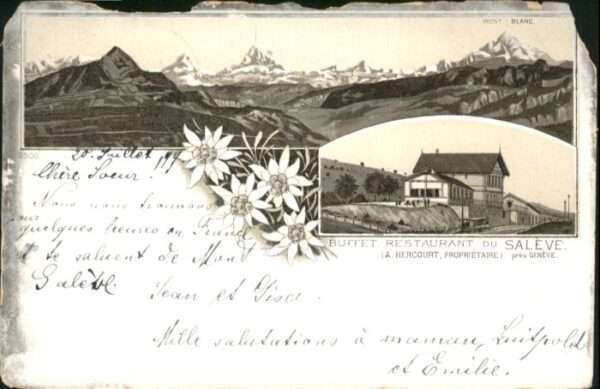 MONT BLANC.
20. Juillet
Chère Soeur,
Nous nous trouvons
quelques heures en France
et te saluent de Mont
Salève. Jean et Lisa.
BUFFET RESTAURANT DU SALÈVE.
(A. HERCOURT, PROPRIÉTAIRE) près GENÈVE.
Mille salutations à maman, Luitpold
et Emilie.